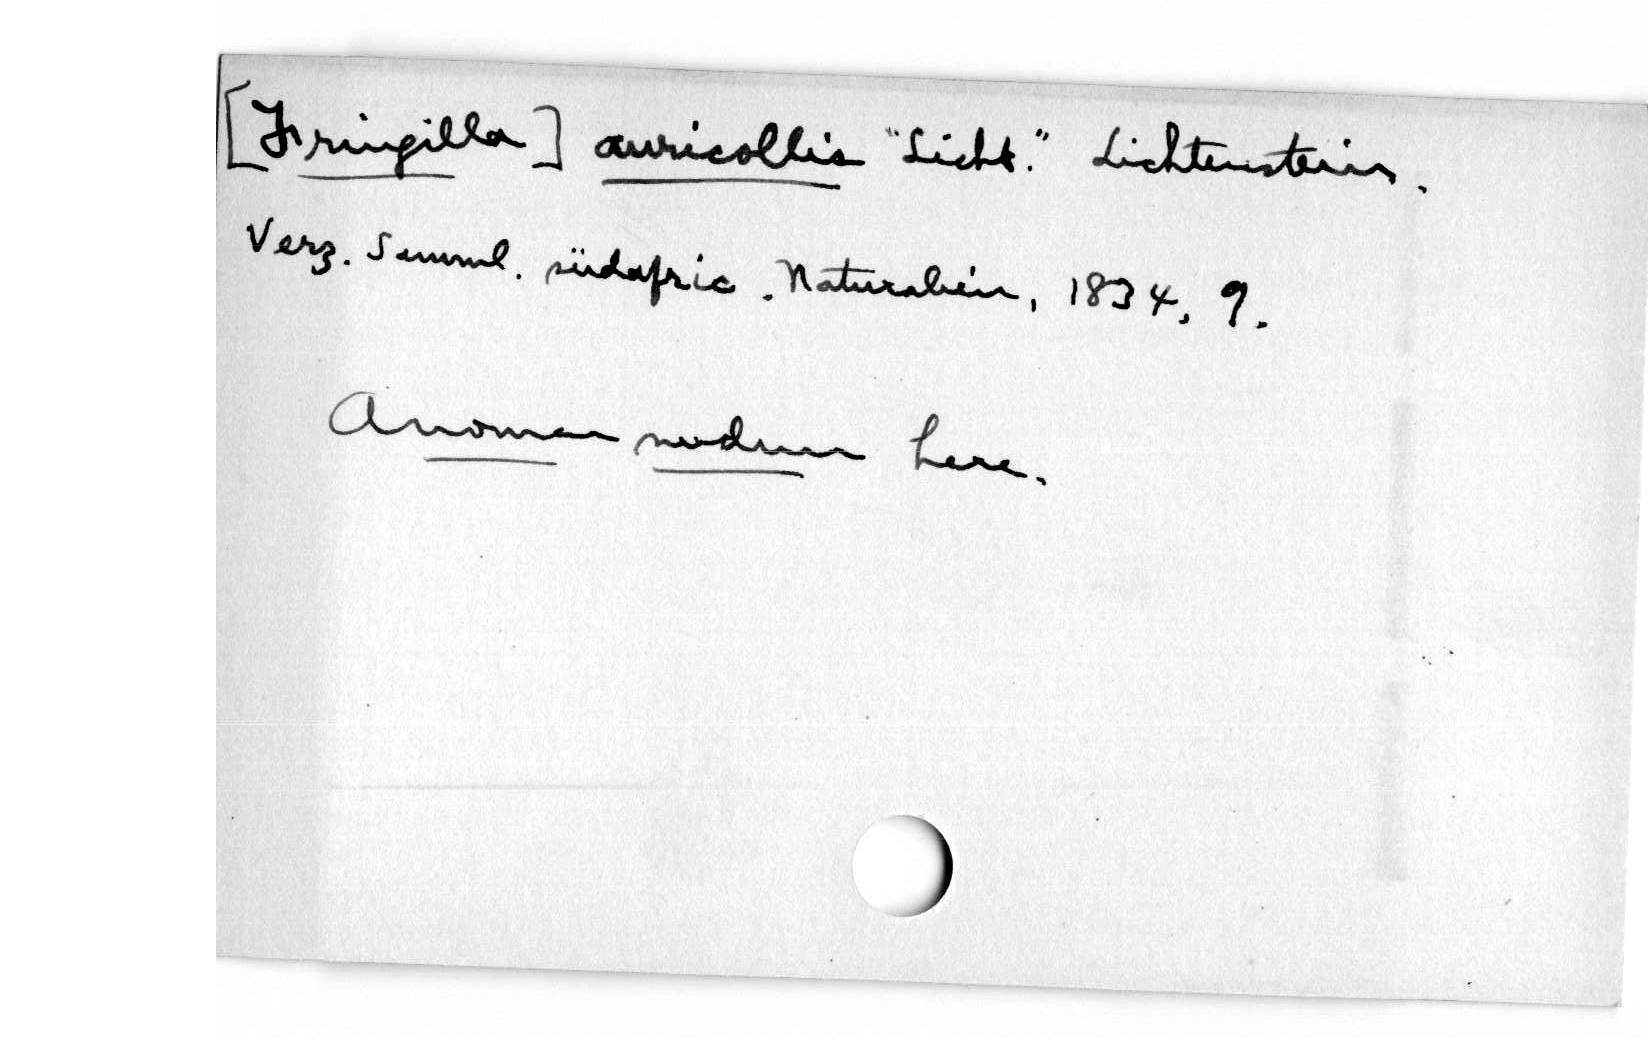 [Fringilla] auricollis "Licht." Lichtenstein.
Verz. Samml. südafric. Naturalien, 1834, 9.
A nomen nudum here.